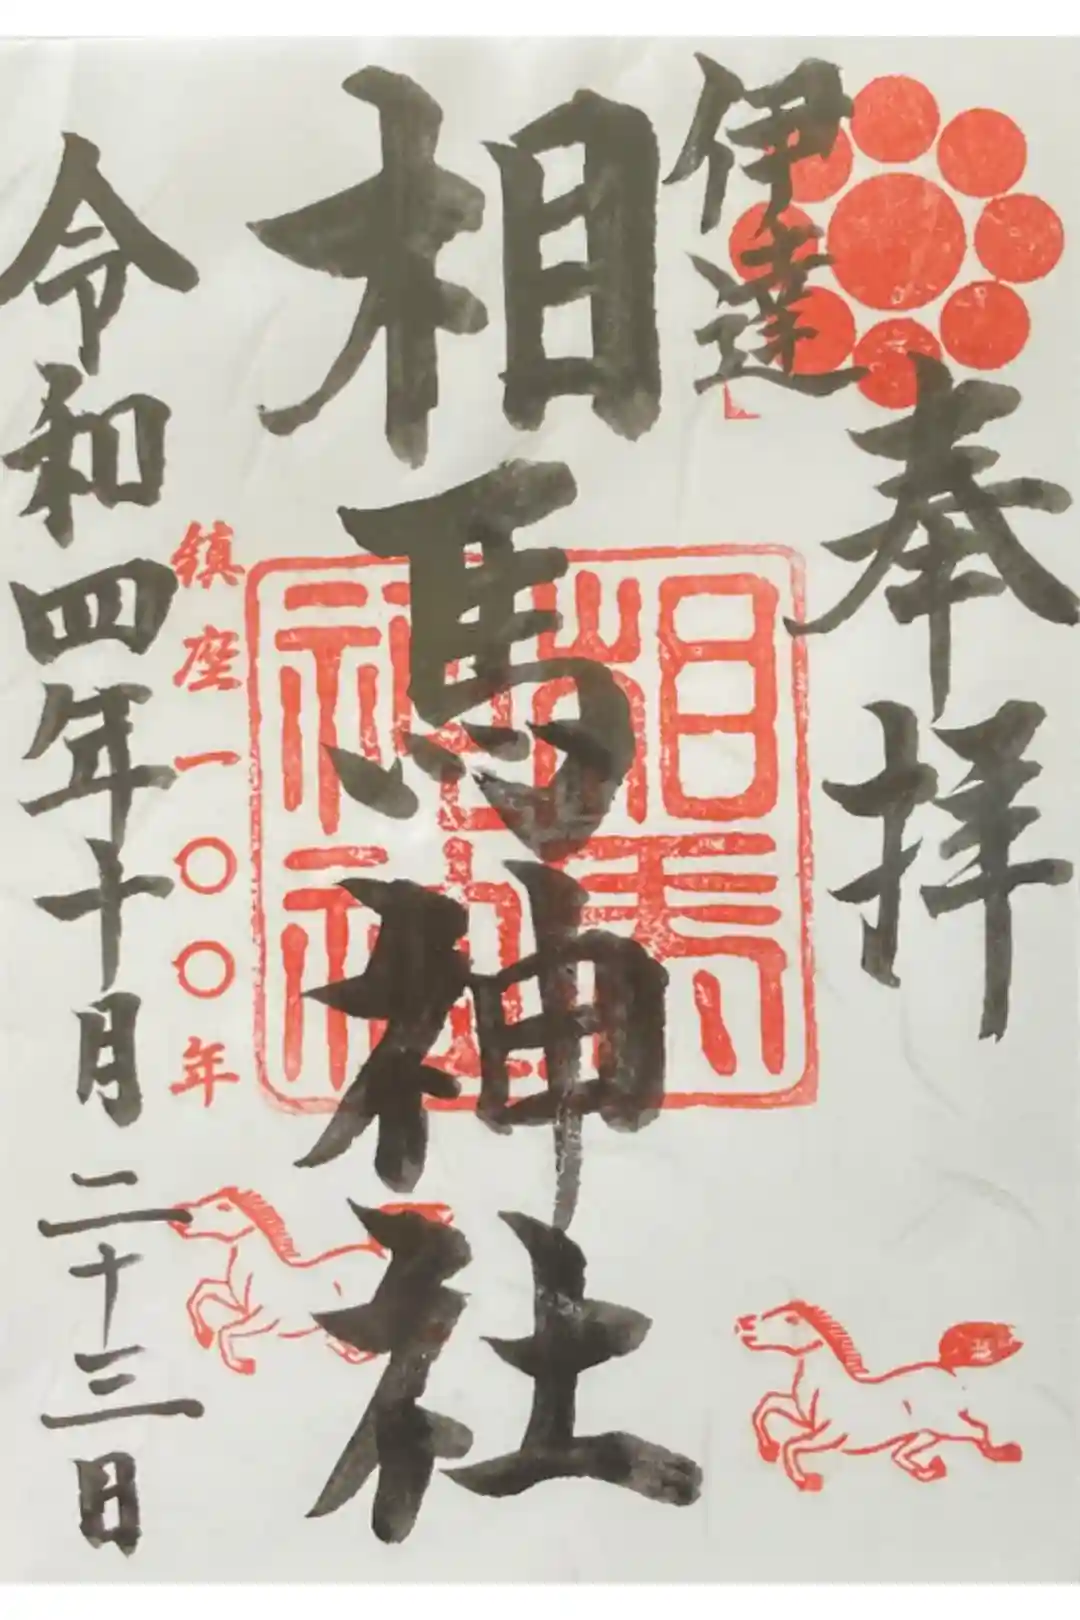 奉拝
伊達
相馬神社
相馬神社
鎮座一〇〇年
令和四年十月二十三日